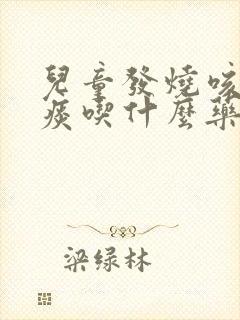 兒童發燒咳
痰喫什麼藥
梁绿林